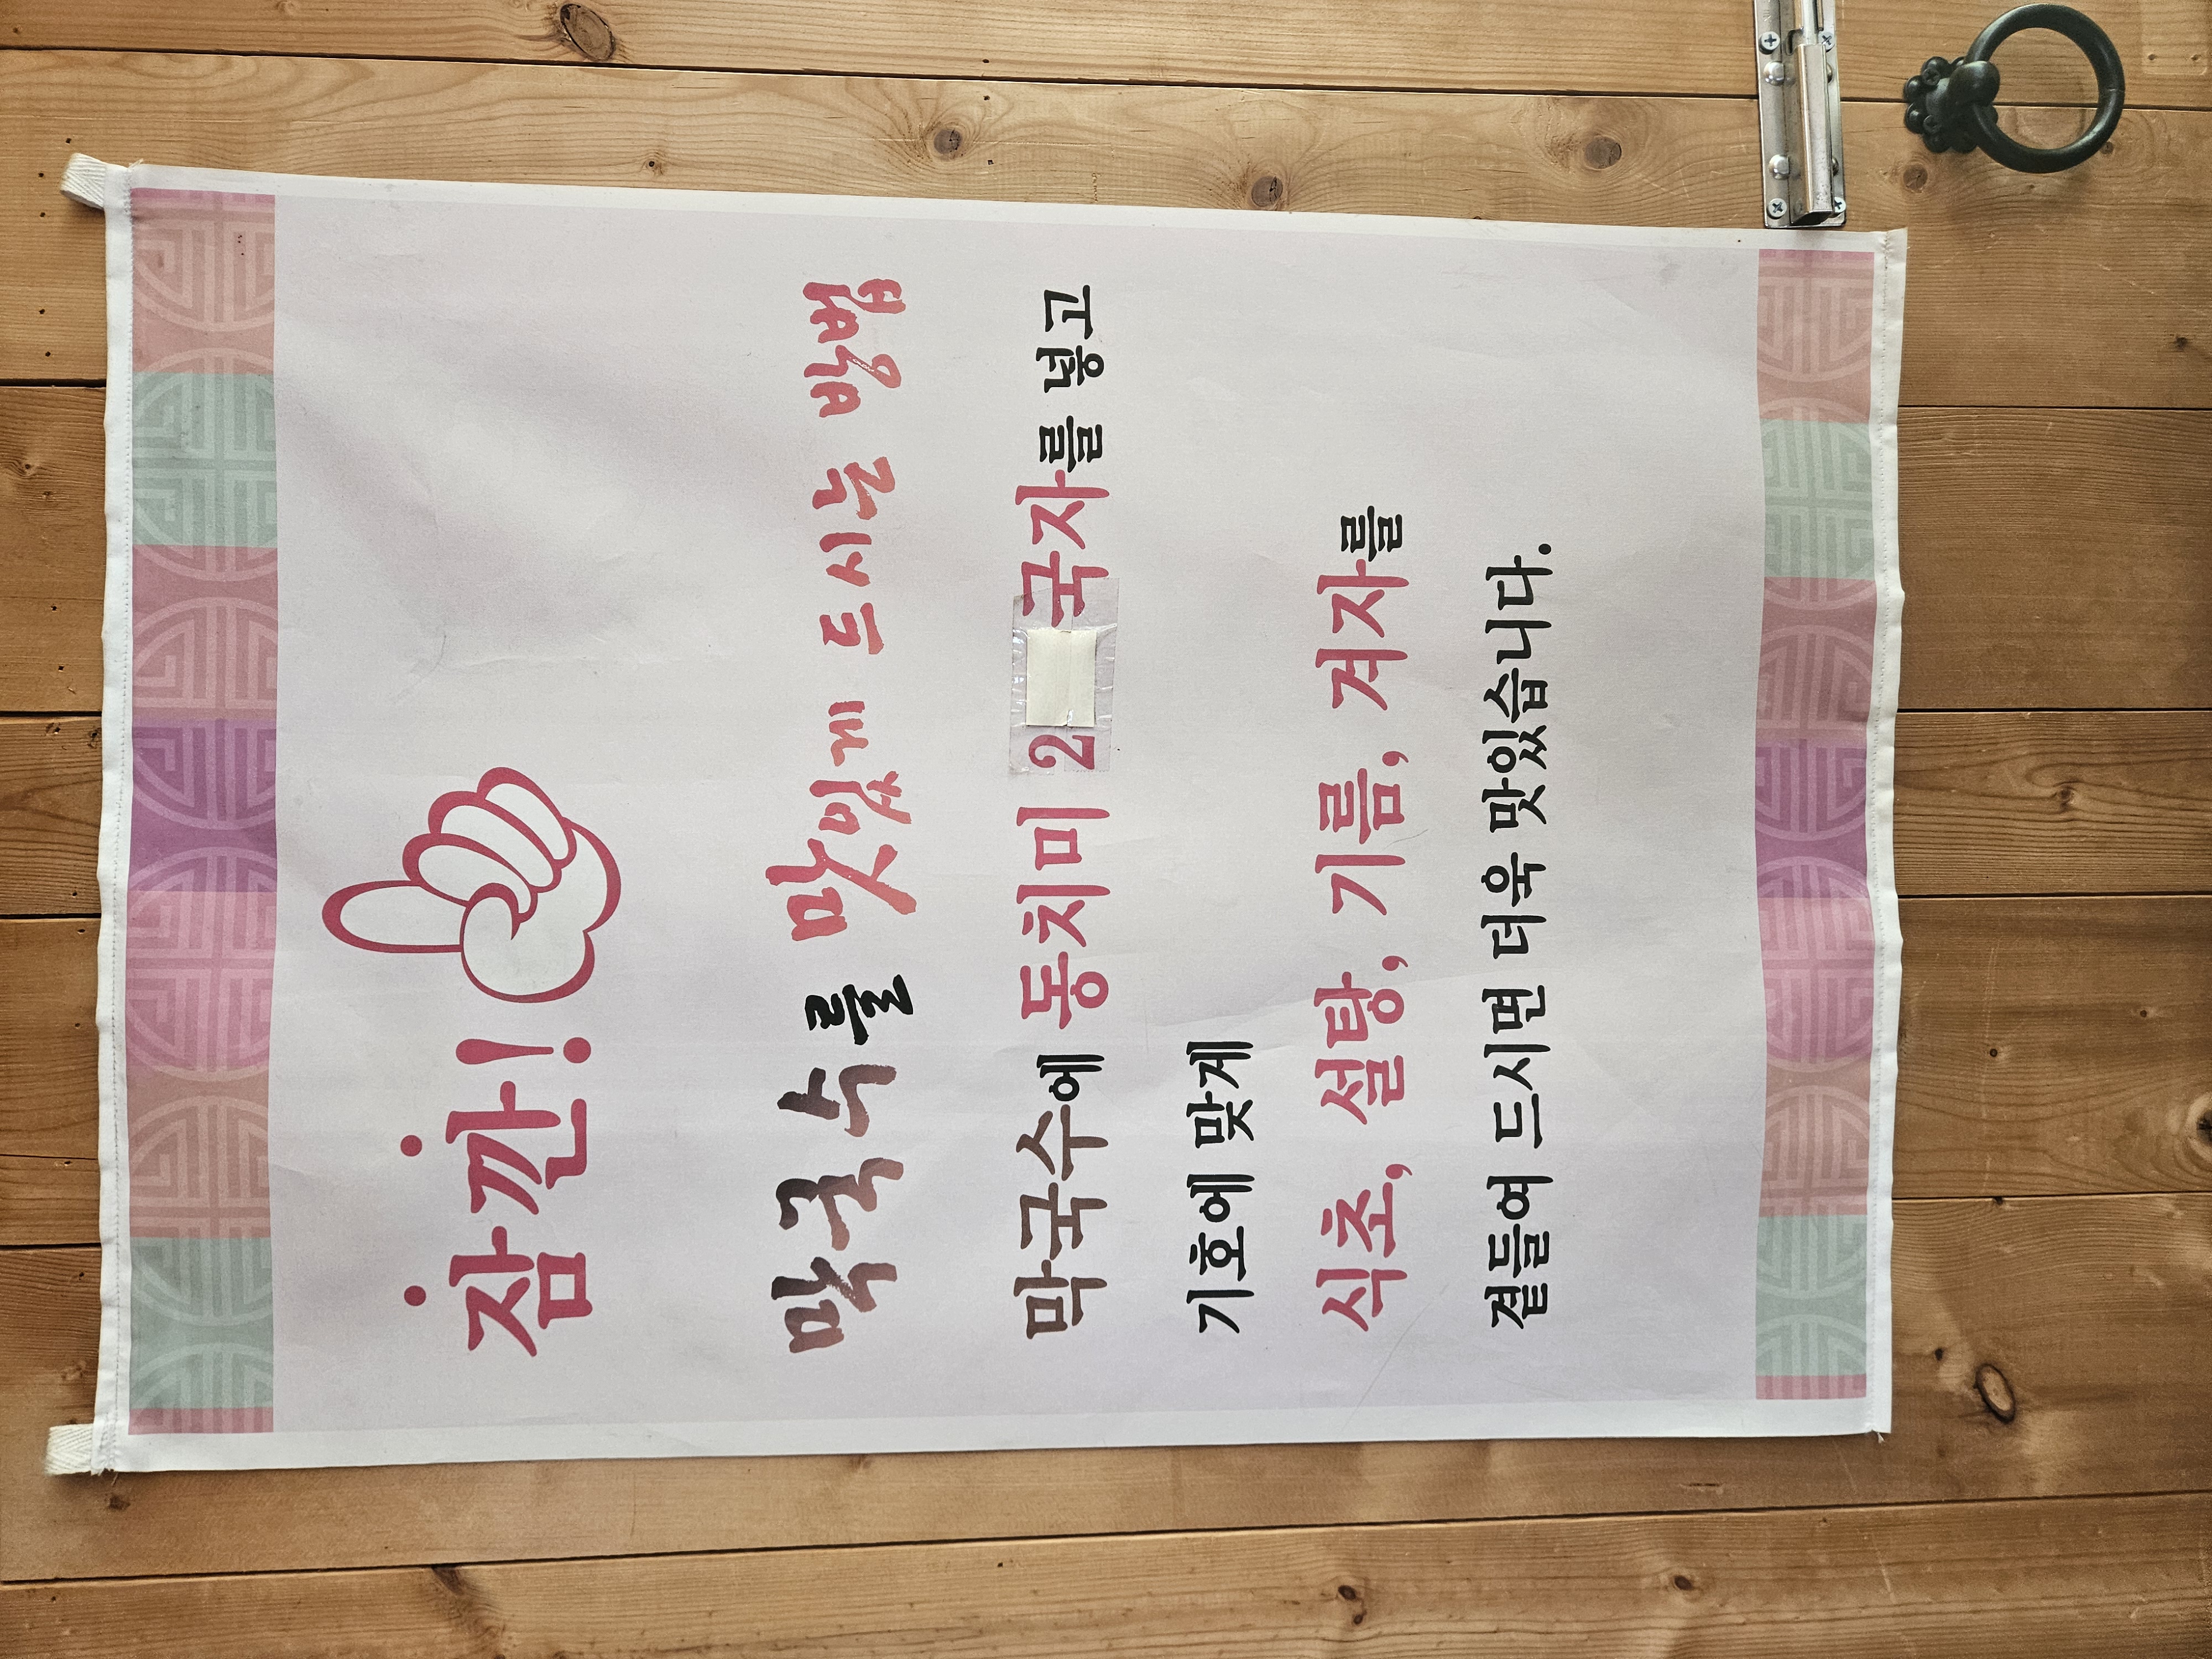 잠깐!
막국수를 맛있게 드시는 방법
막국수에 동치미 2 국자를 넣고
기호에 맞게
식초, 설탕, 기름, 겨자를
곁들여 드시면 더욱 맛있습니다.